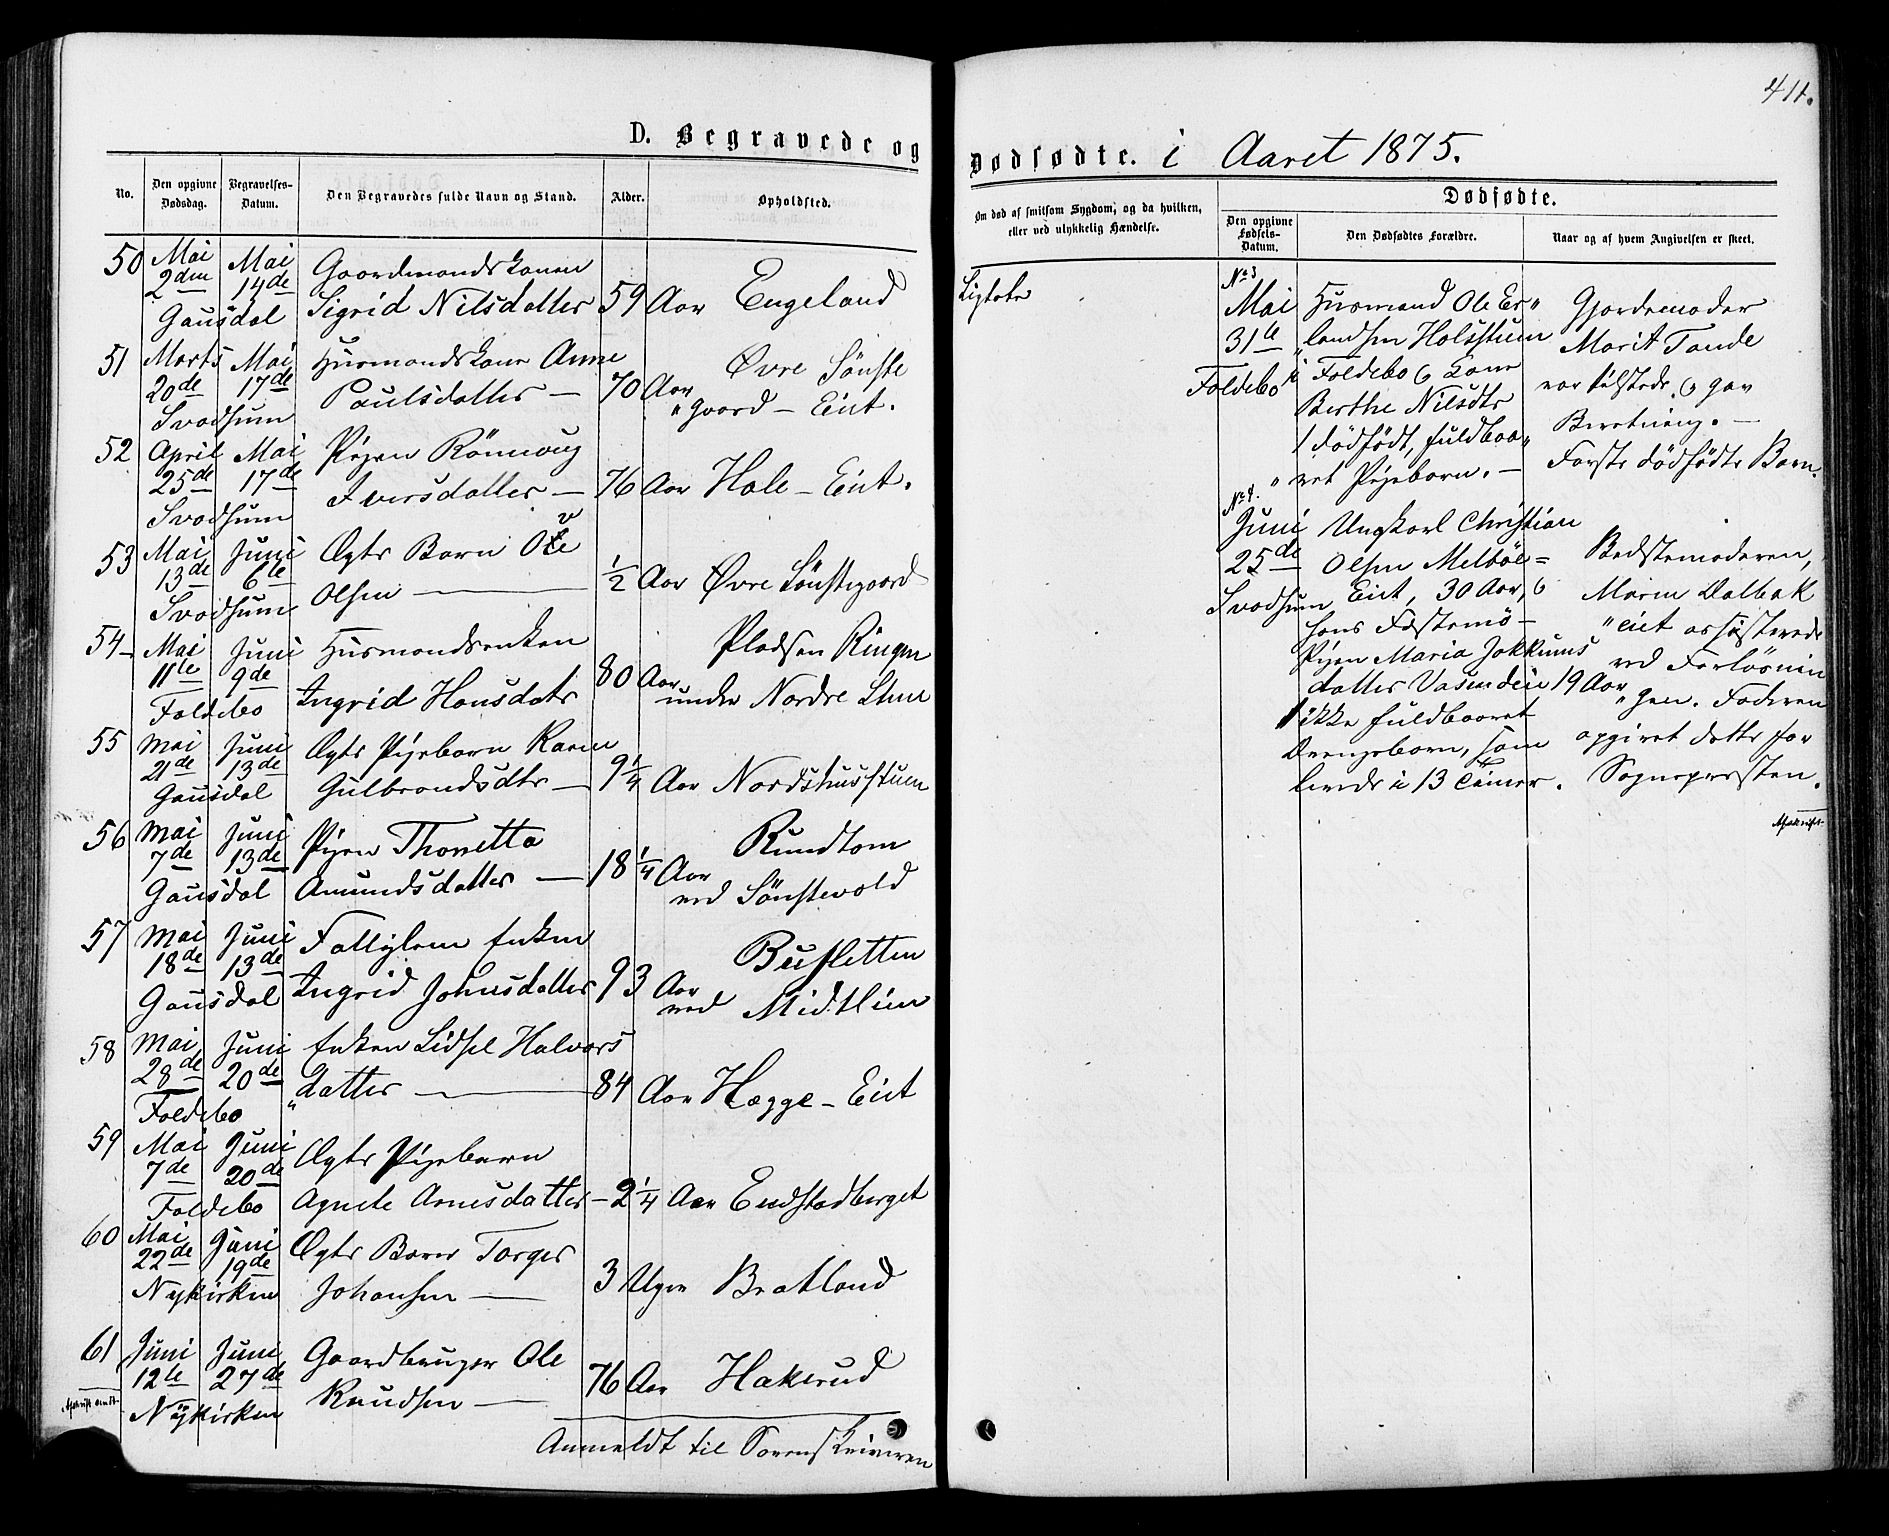 D. Begravede og
No.
Den opgivne Dødsdag.
Begravelses-Datum.
Den Begravedes fulde Navn og Stand.
Alder.
Opholdsted.
50 Mai Mai Gaardmandskonen
2den 14de Sigrid Nilsdatter 59 Aar Engeland
Gausdal
51 Marts Mai Husmandskone Anne Øvre Sönste
20de 17de Paulsdatter — 70 Aar
Svadsum "gaard – Eiet.
52 April Mai Pigen Rönnoug
25de 17de Iversdatter — 76 Aar Hole – Eiet.
Svadsum
53 Mai Juni Ægte Barn
13de 6te Olsen — 1/2 Aar Øvre Sönstegaard
Svadsum
54 – Mai Juni Husmandsenken Pladsen Ringen
11te 9de Ingrid Hansdatr 80 Aar under Nordre
Foldebo
55 Mai Juni Ægte Pigebarn Karen
21de 13de Gulbrandsdtr — 9 1/4 Aar Nordshusstuen
Gausdal
56 Mai Juni Pigen Thonetta Rundtom
7de 13de Amundsdatter — 18 1/4 Aar
Gausdal ved Sönstevold
57 Mai Juni Fattiglem Enken Busletten
18de 13de Ingrid Johnsdatter 93 Aar
Gausdal ved Midtlien
58 Mai Juni Enken Lidsel Halvors
28de 20de "datter — 84 Aar Hægge – Eiet
Foldebo
59 Mai Juni Ægte Pigebarn
7de 20de Agnete Arnesdatter – 2 1/4 Aar Endstadberget
Foldebo
60 Mai Juni Ægte Barn Torger
22de 19de Johansen — 3 Uger Bratland
Nykirken
61 Juni Juni Gaardbruger Ole
12te 27de Knudsen — 76 Aar Hakerud
Nykirken
Anmeldt til Sorenskriveren
411.
Dødfødte. i Aaret 1875.
Om død af smitsom Sygdom, og da hvilken, eller ved ulykkelig Hændelse.
Dødfødte.
Den opgivne Fødsels-Datum.
Den Dødfødtes Forældre.
Naar og af hvem Angivelsen er skeet.
No 3
Mai Husmand Ole Er" Gjordemoder
31te "landsen Holsstuen Marit Tande
Foldebo i Foldebo & Kone var tilstede, & gav
Berthe Nilsdtr Beretning. —
1 dödfödt, fuldbaa" Första dödfödte Barn.
"ret Pigebarn. —
No 4.
Juni Ungkarl Christian
25de Olsen Melböe= Bedstemoderen,
Svadsum Eiet, 30 Aar, & Maren Dalbak
hans Fæstemö – "eiet assisterede
Pigen Maria Jokkums ved Forlösnin
datter 19 Aar "gen. Faderen
1 ikke fuldbaaret opgivet dette for
Drengebarn, som Sognepresten.
levede i 13 Timer.